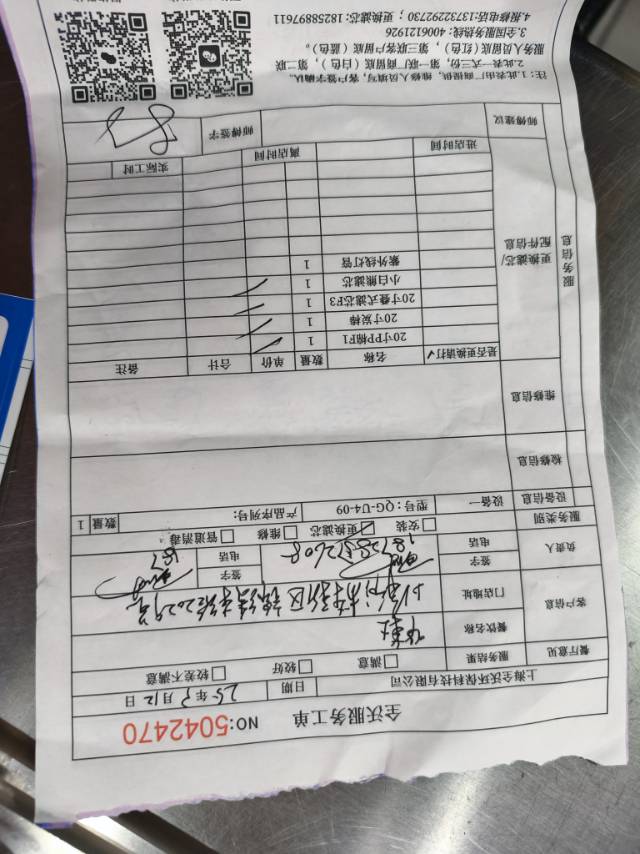 全沃服务工单
NO:5042470
上海全沃环保科技有限公司 日期 25年 月12日
餐厅意见 服务结果 □满意 □较好 □较差不满意
客户信息 餐饮名称
门店地址
负责人 签字 签字
电话 电话
服务类别 □安装 ☑更换滤芯 □维修 □管道消毒
设备信息 设备一 型号：QG-U4-09 产品序列号： 数量 1
检修信息
维修信息
服务信息 更换滤芯/配件信息
是否更换请打√ 名称 数量 单价 合计 备注
20寸PP棉F1 1
20寸炭棒 1
20寸叠式滤芯F3 1
小白熊滤芯 1
紫外线灯管 1
进店时间 离店时间 实际工时
师傅建议 师傅签字
注：1.此表由厂商提供，维修人员填写，客户签字确认。
2.此表一式三份，第一联厂商留底（白色），第二联
服务人员留底（红色），第三联客户留底（蓝色）。
3.全国服务热线：4006121926
4.报修电话:13732292730；更换滤芯：18258897611